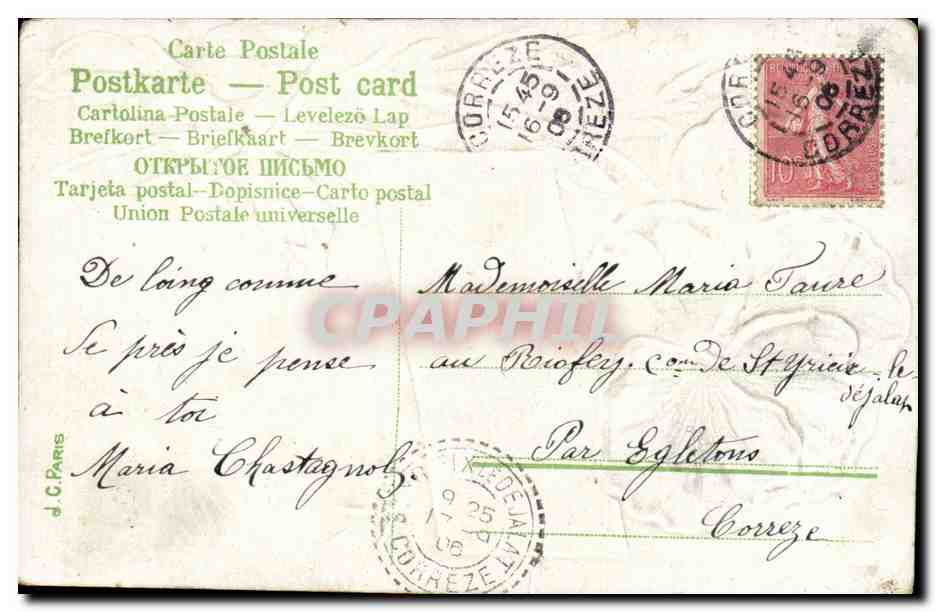 Carte Postale
Postkarte — Post card
Cartolina Postale — Levelező Lap
Brefkort — Briefkaart — Brevkort
ОТКРЫТОЕ ПИСЬМО
Tarjeta postal–Dopisnice–Carto postal
Union Postale universelle
CORREZE
15 45
16 - 9
06
CORREZE
15 4
16 9
06
10
De loing comme
de près je pense
à toi
Maria Chastagnol
Mademoiselle Maria Faure
au Riofey, com de St Yrieix-le-
déjalat
Par Egletons
Correze
IX LE DEJALAT
9 25
06
CORREZE
J.C. PARIS
CPAPHIL